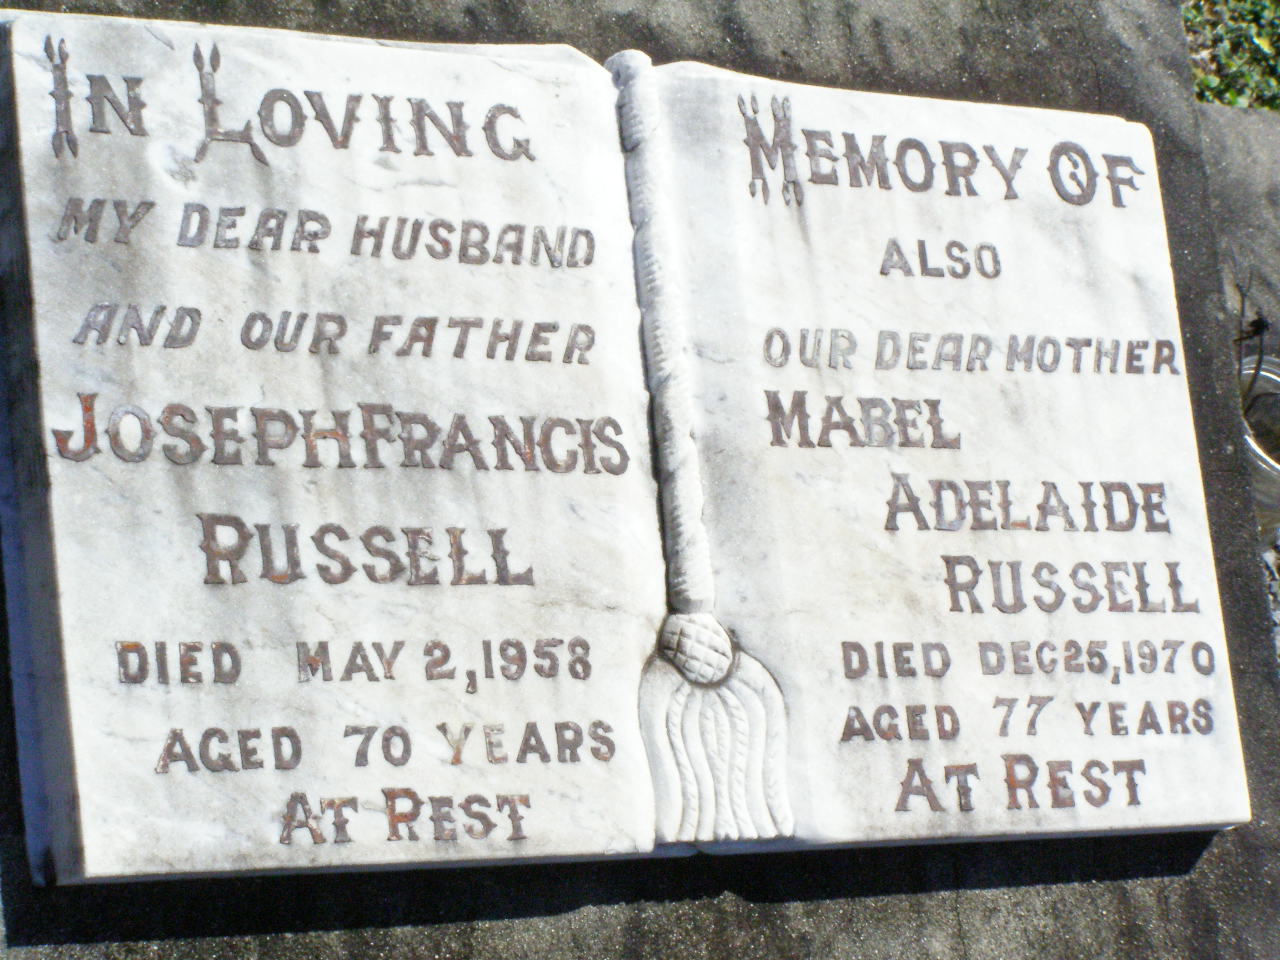 IN LOVING
MY DEAR HUSBAND
AND OUR FATHER
JOSEPH FRANCIS
RUSSELL
DIED MAY 2, 1958
AGED 70 YEARS
AT REST
MEMORY OF
ALSO
OUR DEAR MOTHER
MABEL
ADELAIDE
RUSSELL
DIED DEC 25, 1970
AGED 77 YEARS
AT REST